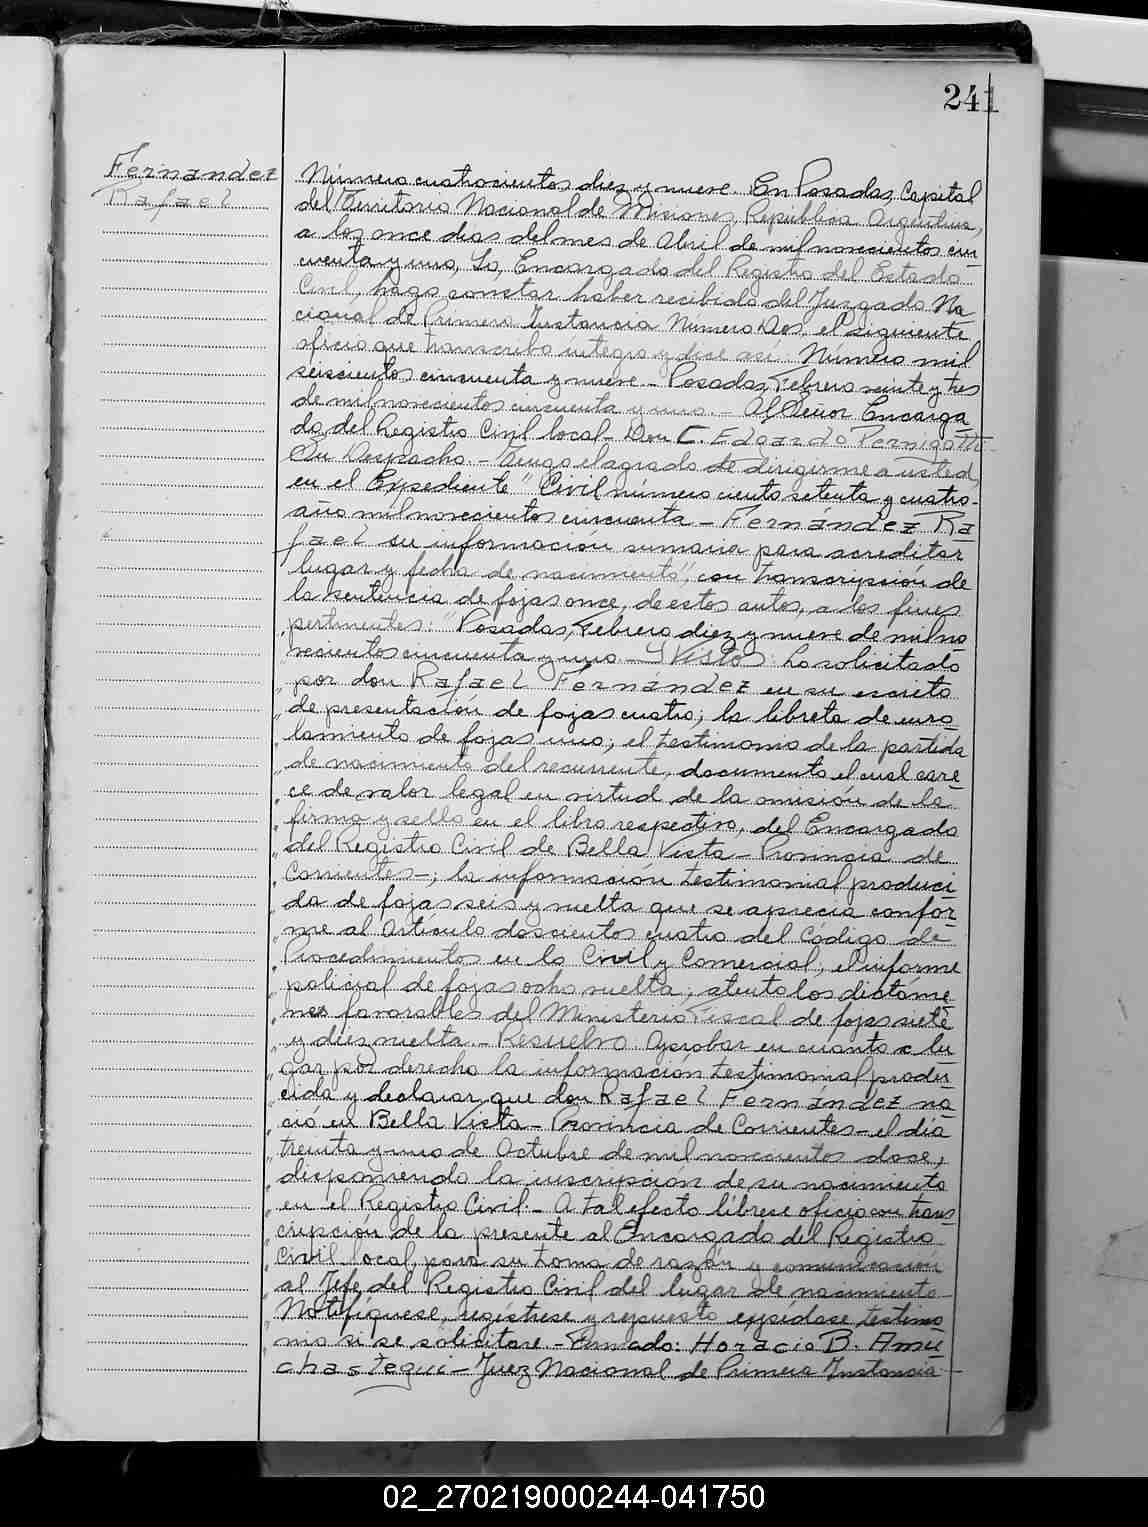 241
Fernandez
Rafael
Número cuatrocientos diez y nueve. En Posadas, Capital
del Territorio Nacional de Misiones, República Argentina,
a los once dias del mes de Abril de mil novecientos cin-
cuenta y uno, Yo, Encargado del Registro del Estado
Civil, hago constar haber recibido del Juzgado Na
cional de Primera Instancia Número Dos el siguiente
oficio que transcribo íntegro y dice así: Número mil
seiscientos cincuenta y nueve.- Posadas, Febrero veinte y tres
de mil novecientos cincuenta y uno.- Al Señor Encarga
do del Registro Civil local- Don C. Edgardo Pernigotti-
Su Despacho.- Tengo el agrado de dirigirme a usted,
en el Expediente "Civil número ciento setenta y cuatro-
año mil novecientos cincuenta- Fernández Ra
fael su información sumaria para acreditar
lugar y fecha de nacimiento", con transcripción de
la sentencia de fojas once, de estos autos, a los fines
pertinentes: "Posadas, Febrero diez y nueve de mil no
vecientos cincuenta y uno.- Y Vistos: Lo solicitado
por don Rafael Fernández en su escrito
de presentación de fojas cuatro; la libreta de enro
lamiento de fojas uno; el testimonio de la partida
de nacimiento del recurrente, documento el cual care
ce de valor legal en virtud de la omisión de la
firma y sello en el libro respectivo, del Encargado
del Registro Civil de Bella Vista- Provincia de
Corrientes-; la información testimonial produci
da de fojas seis y vuelta que se aprecia confor
me al Artículo doscientos cuatro del Código de
Procedimientos en lo Civil y Comercial; el informe
policial de fojas ocho vuelta; atento los dictáme
nes favorables del Ministerio Fiscal de fojas siete
y diez vuelta.- Resuelvo: Aprobar en cuanto a lu
gar por derecho la información testimonial produ
cida y declarar que don Rafael Fernández na
ció en Bella Vista- Provincia de Corrientes- el día
treinta y uno de Octubre de mil novecientos doce,
disponiendo la inscripción de su nacimiento
en el Registro Civil.- A tal efecto líbrese oficio con trans
cripción de la presente al Encargado del Registro
Civil local, para su toma de razón y comunicación
al Jefe del Registro Civil del lugar de nacimiento
Notifíquese, regístrese y repuesto expídase testimo
nio si se solicitare- Firmado: Horacio B. Amu
chastegui- Juez Nacional de Primera Instancia-
02_270219000244-041750